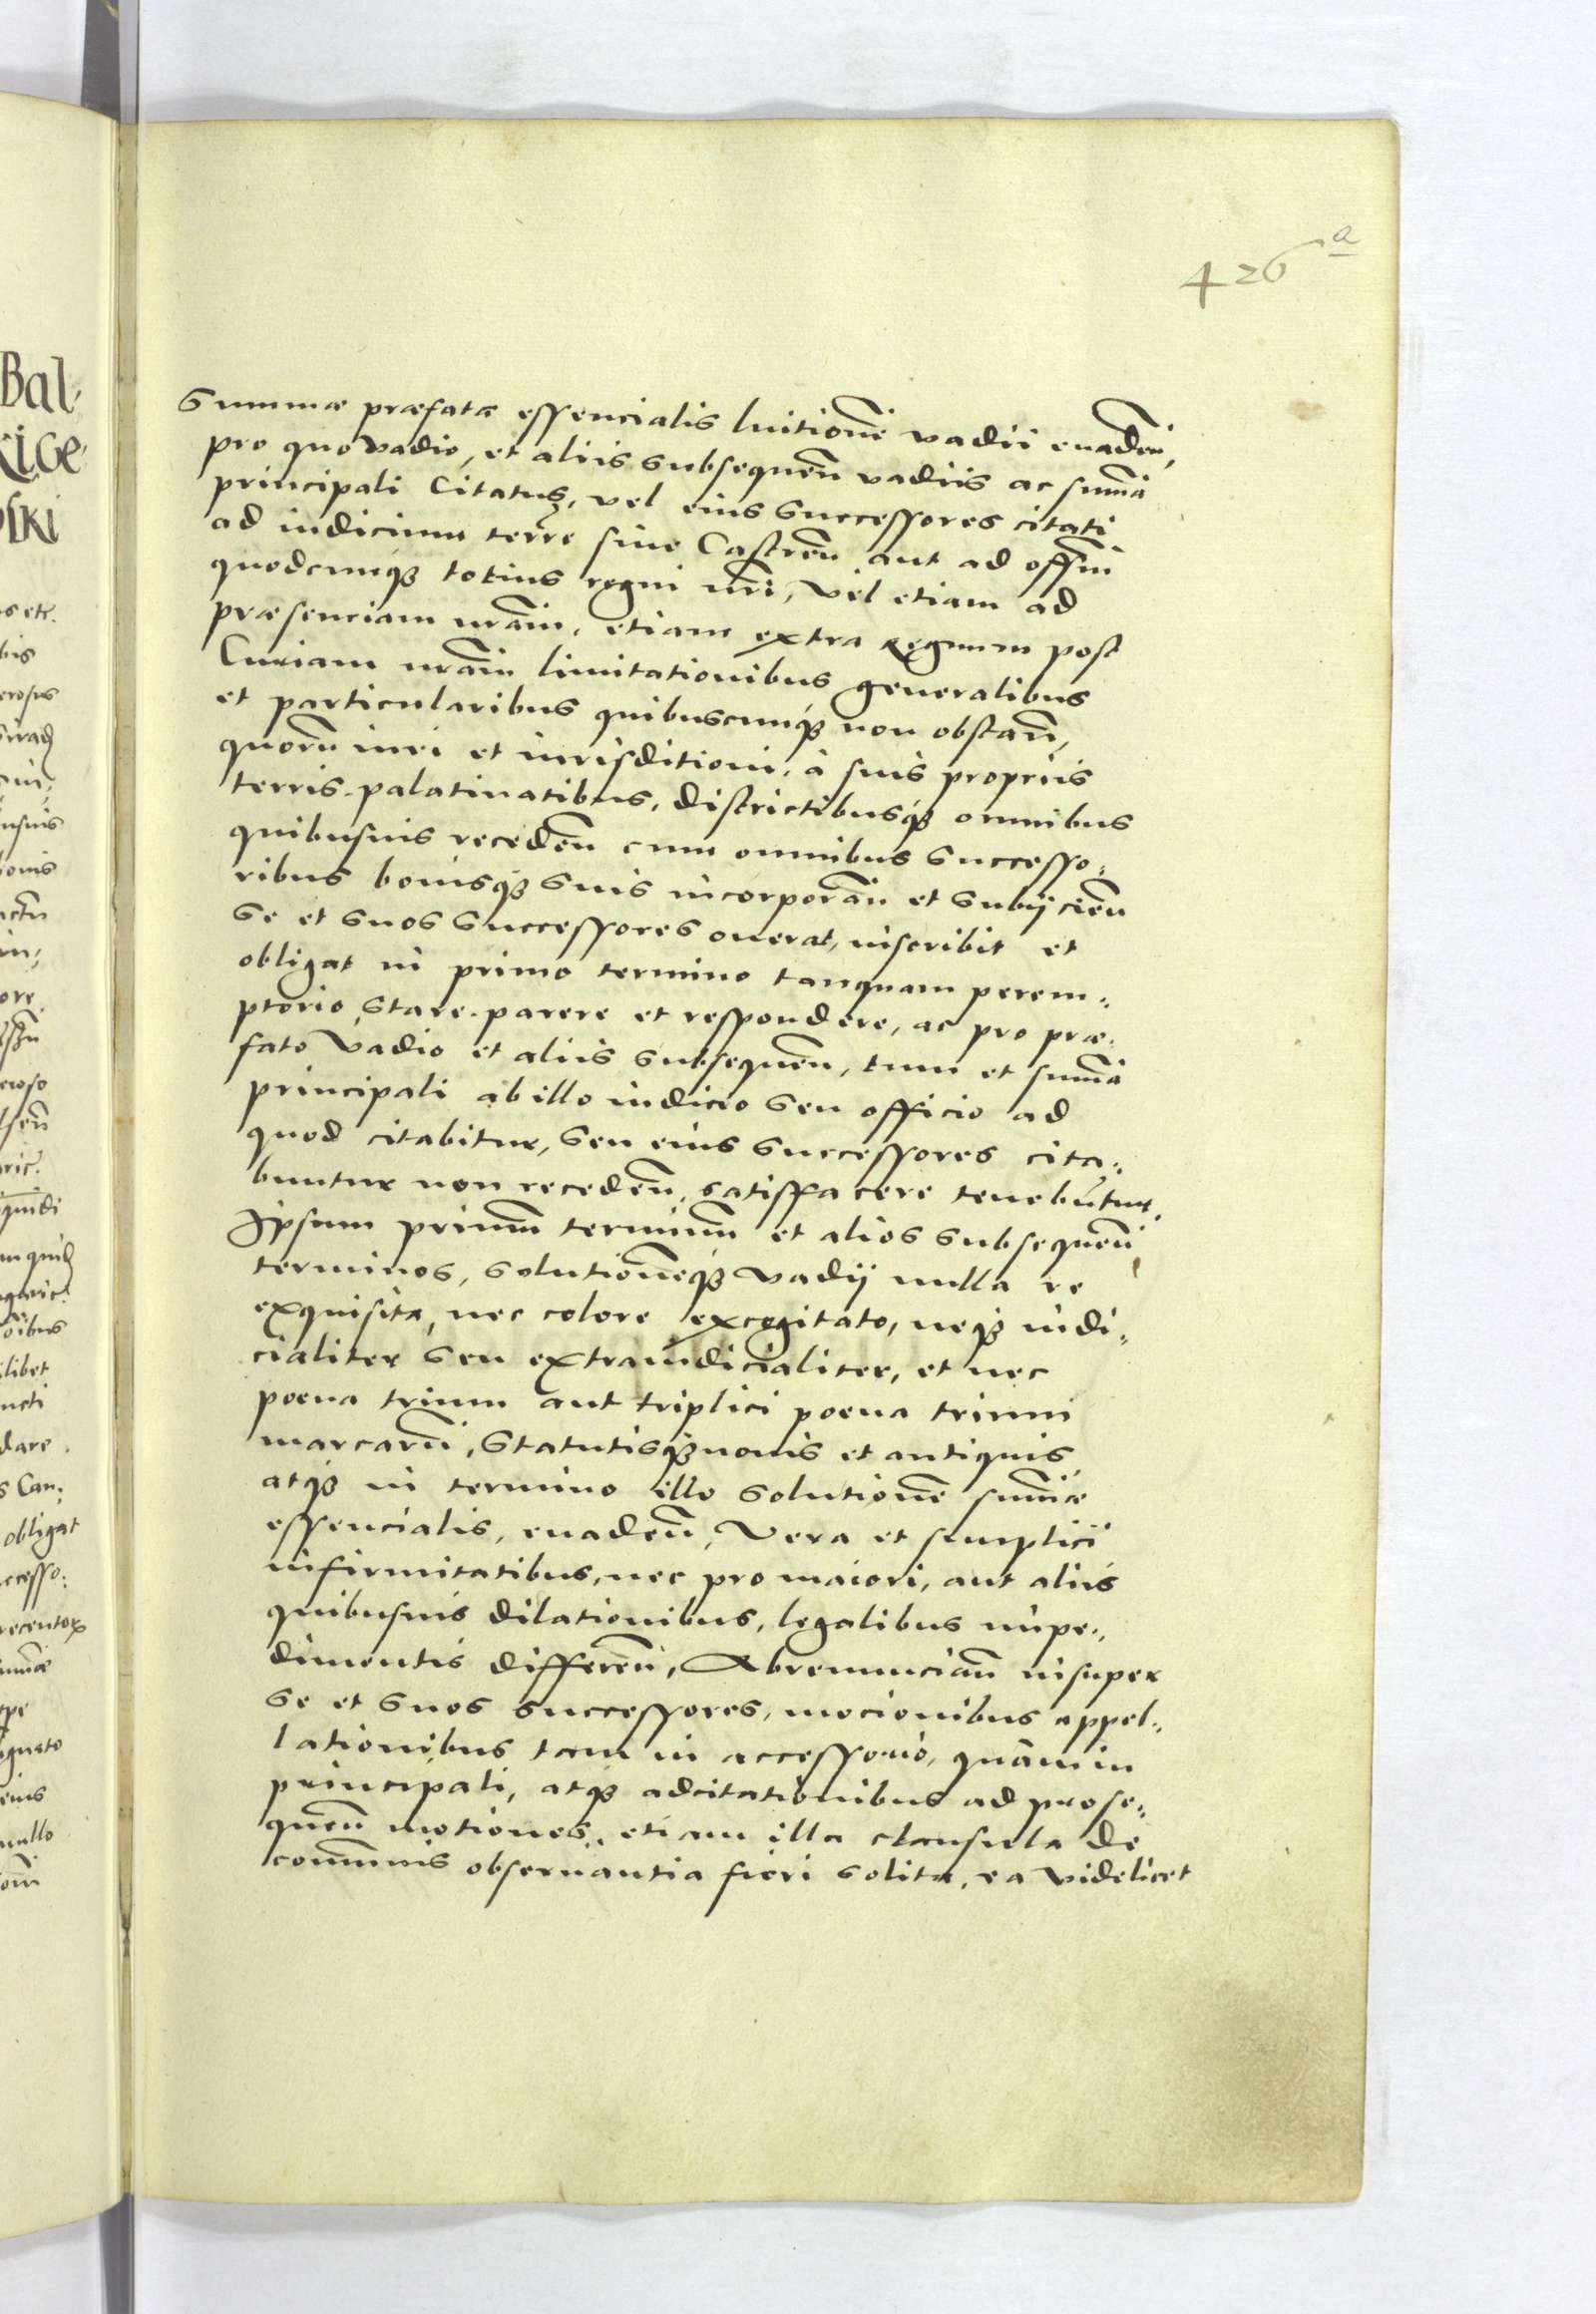 426 a
Summæ præfatæ essencialis luitionē vadii euadeñ,
pro quo vadio, et aliis subsequeñ vadiis ac sum̄a
principali Citatus, vel eius successores citati
ad iudicium terrē siue Castreñ aut ad offm̄
quodcunq̨ totius regni nr̄i, vel etiam ad
præsenciam nr̄am, etiam extra Regnum post
Curiam nr̄am limitationibus generalibus
et particularibus quibuscunq̨ non obstañ,
quorū iuri et iurisditioni, à suis propriis
terris palatinatibus, districtibusq̨ omnibus
quibusuis recedeñ cum omnibus successo:
ribus bonisq̨ suis incorporañ et subijcieñ
se et suos successores onerat, inscribit et
obligat in primo termino tanquam perem:
ptorio stare parere et respondere, ac pro præ:
fato vadio et aliis subsequeñ, tum et sum̄a
principali ab illo iudicio seu officio ad
quod citabitur, seu eius successores cita:
buntur non recedeñ, satisffacere tenebūtur.
Ipsum primū terminū et alios subsequeñ
terminos, solutionēq̨ vadij nulla re
exquisita, nec colore excogitato, neq̨ iudi:
cialiter seu extraiudicialiter, et nec
poena trium aut triplici poena trium
marcarū, statutisq̨ nouis et antiquis
atq̨ in termino illo solutionē sum̄æ
essencialis, euadeñ, Vera et simplici
infirmitatibus, nec pro maiori, aut aliis
quibusuis dilationibus, legalibus impe:
dimentis differeñ, Abrenunciañ insuper
se et suos successores, mocionibus appel:
lationibus tam in accessorio, quàm in
principali, atq̨ adcitationibus ad prose:
queñ motiones, etiam illa clausula de
com̄unis obseruantia fieri solita, ea videlicet